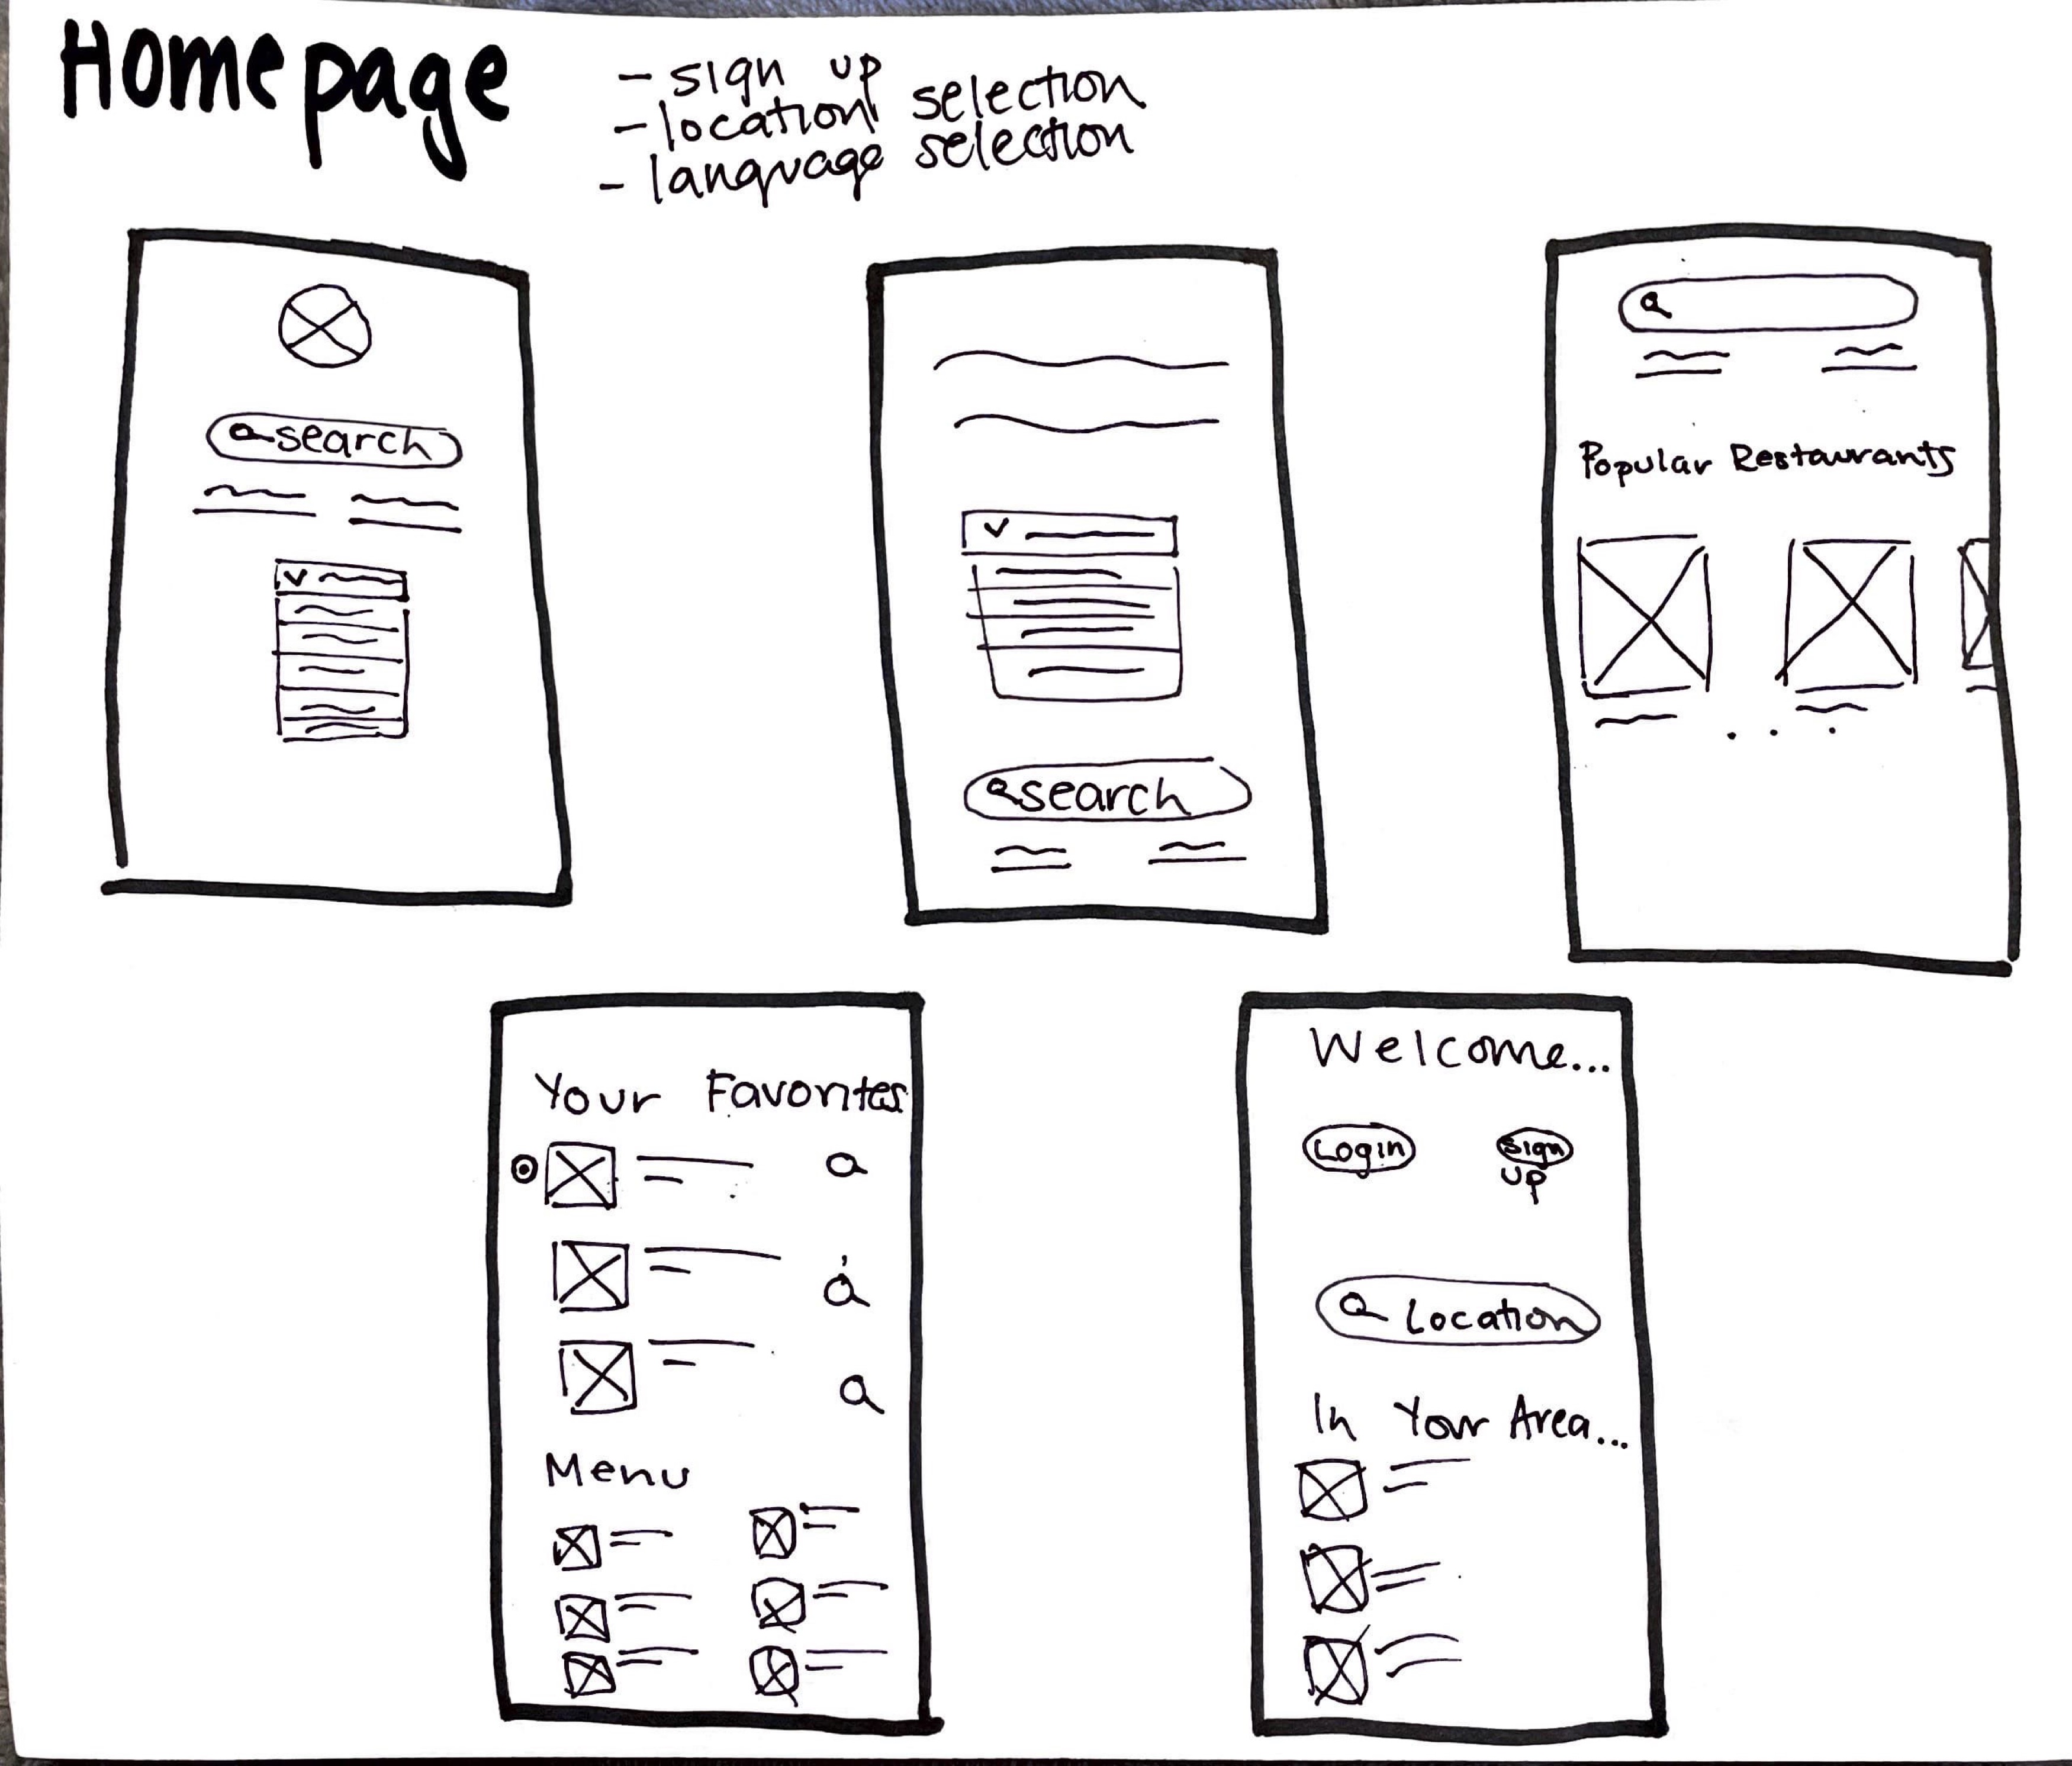 Homepage
- sign up
- location selection
- language selection
search
search
Popular Restaurants
Your Favorites
Menu
Welcome...
Login
Sign
up
Location
In Your Area...